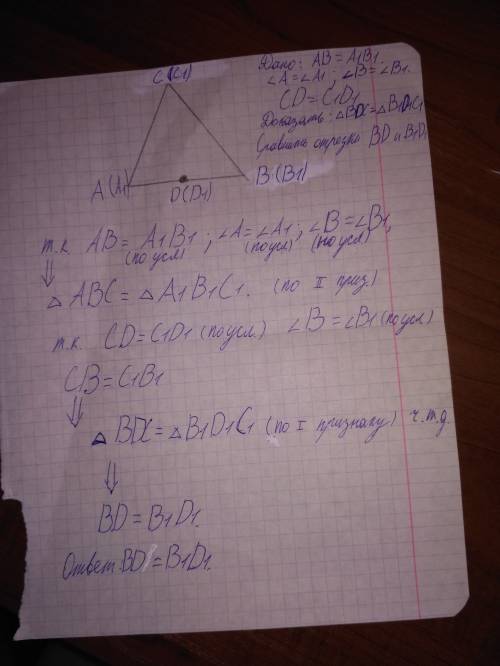 C(C1)
A(A1)
D(D1)
B(B1)
Дано: AB = A1B1.
∠A = ∠A1; ∠B = ∠B1.
CD = C1D1
Доказать: △BDC = △B1D1C1
Сравнить отрезки BD и B1D1
т.к. AB = A1B1; ∠A = ∠A1; ∠B = ∠B1,
(по усл) (по усл) (по усл)
⇓
△ABC = △A1B1C1. (по II приз)
т.к. CD = C1D1 (по усл.) ∠B = ∠B1 (по усл)
CB = C1B1
⇓
△BDC = △B1D1C1 (по I признаку) ч.т.д.
⇓
BD = B1D1.
Ответ: BD = B1D1.